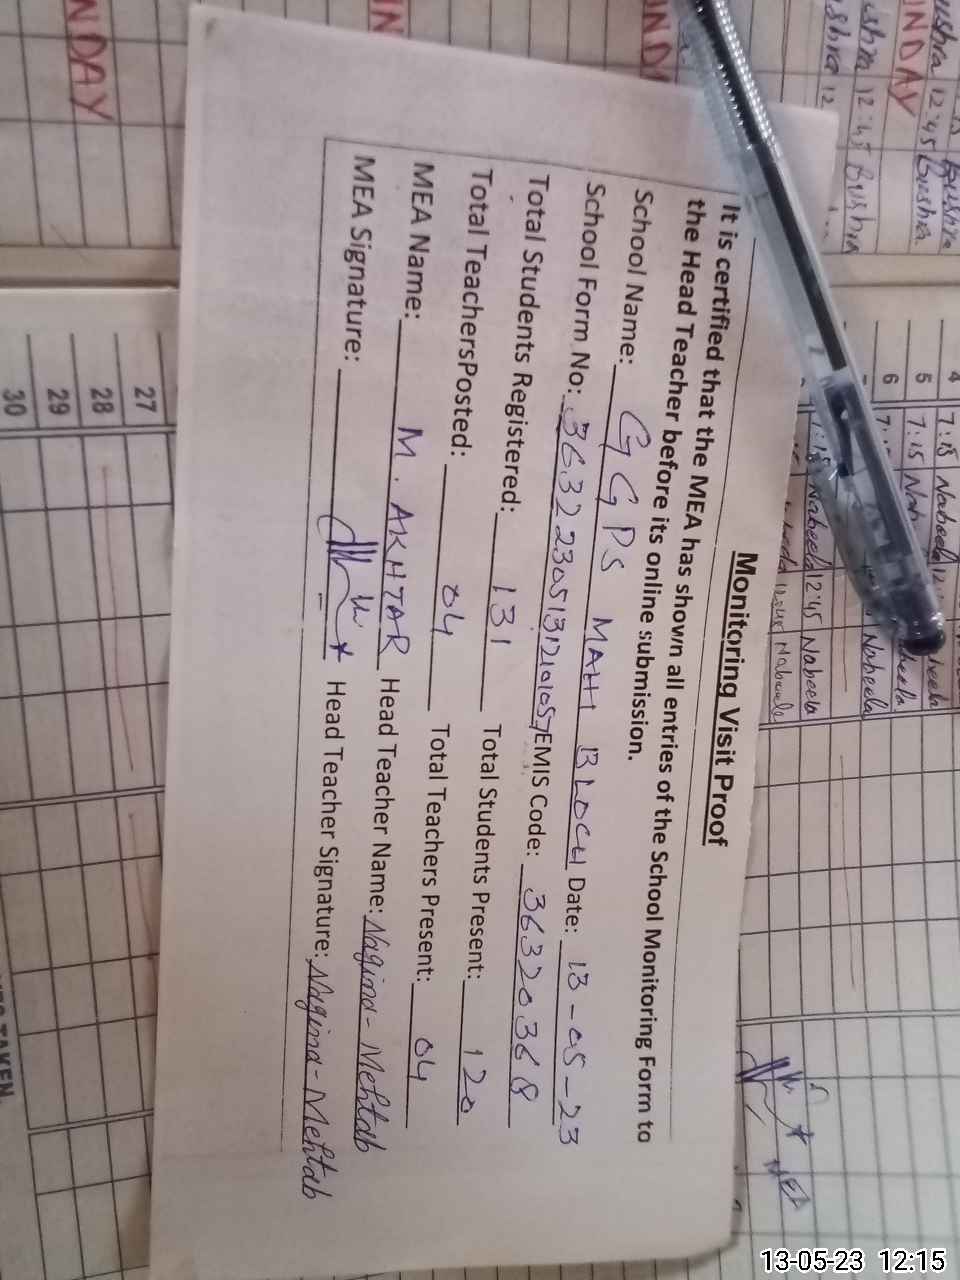 Monitoring Visit Proof
It is certified that the MEA has shown all entries of the School Monitoring Form to
the Head Teacher before its online submission.
School Name: GGPS MAH BLOCH Date: 13-05-23
School Form No: EMIS Code: 36320368
Total Students Registered: 131 Total Students Present: 120
Total TeachersPosted: 04 Total Teachers Present: 04
MEA Name: M. AKHTAR Head Teacher Name: Nagina-Mehtab
MEA Signature: Head Teacher Signature: Nagina-Mehtab
MEA
NDAY
UNDAY
Bushra 12:45 Bushra
12:45 Bushra
4 7:15 Nabeela
5 7:15
6
Nabeela
Nabeela 12:45 Nabeela
Nabeela
27
28
29
30
TAKEN
13-05-23 12:15